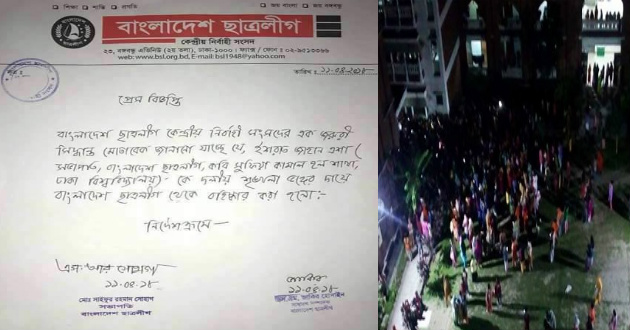 শিক্ষা শান্তি প্রগতি
জয় বাংলা জয় বঙ্গবন্ধু
বাংলাদেশ ছাত্রলীগ
কেন্দ্রীয় নির্বাহী সংসদ
২৩, বঙ্গবন্ধু এভিনিউ (২য় তলা), ঢাকা-১০০০। ফ্যাক্স / ফোন : ০২-৯৫১৩৩৬৬
web:www.bsl.org.bd, E-mail:bsl1948@yahoo.com
সূত্র :
তারিখ : ১১-০৪-২০১৮
প্রেস বিজ্ঞপ্তি
বাংলাদেশ ছাত্রলীগ কেন্দ্রীয় নির্বাহী সংসদের এক জরুরী
সিদ্ধান্ত মোতাবেক জানানো যাচ্ছে যে, ইশরাত জাহান এশা (
সভাপতি, বাংলাদেশ ছাত্রলীগ, কবি সুফিয়া কামাল হল শাখা,
ঢাকা বিশ্ববিদ্যালয়)- কে দলীয় শৃঙ্খলা ভঙ্গের দায়ে
বাংলাদেশ ছাত্রলীগ থেকে বহিষ্কার করা হলো:-
নির্দেশক্রমে-
১১-০৪-১৮
মোঃ সাইফুর রহমান সোহাগ
সভাপতি
বাংলাদেশ ছাত্রলীগ
১১-০৪-১৮
এস.এম. জাকির হোসাইন
সাধারণ সম্পাদক
বাংলাদেশ ছাত্রলীগ